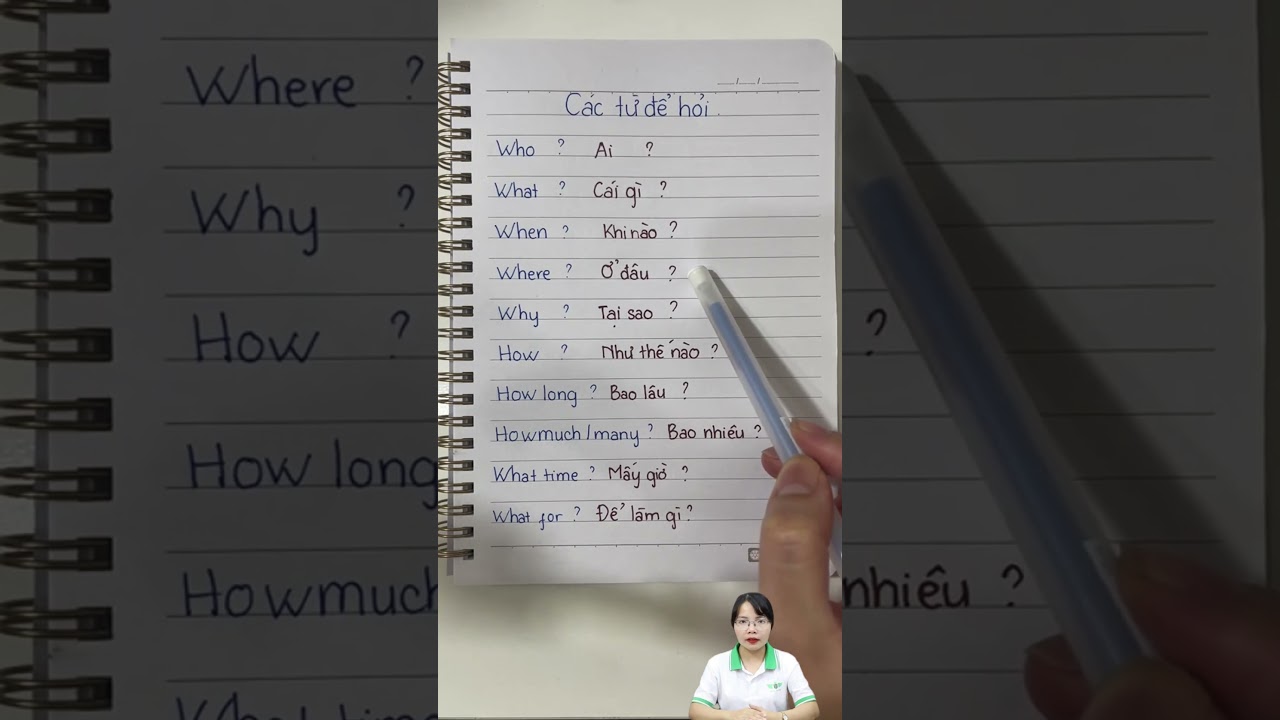 Các từ để hỏi.
Who ? Ai ?
What ? Cái gì ?
When ? Khi nào ?
Where ? Ở đâu ?
Why ? Tại sao ?
How ? Như thế nào ?
How long ? Bao lâu ?
Howmuch/many ? Bao nhiêu ?
What time ? Mấy giờ ?
What for ? Để làm gì ?
Where ?
Why ?
How ?
How long
Howmuch
What time
?
nhiêu ?